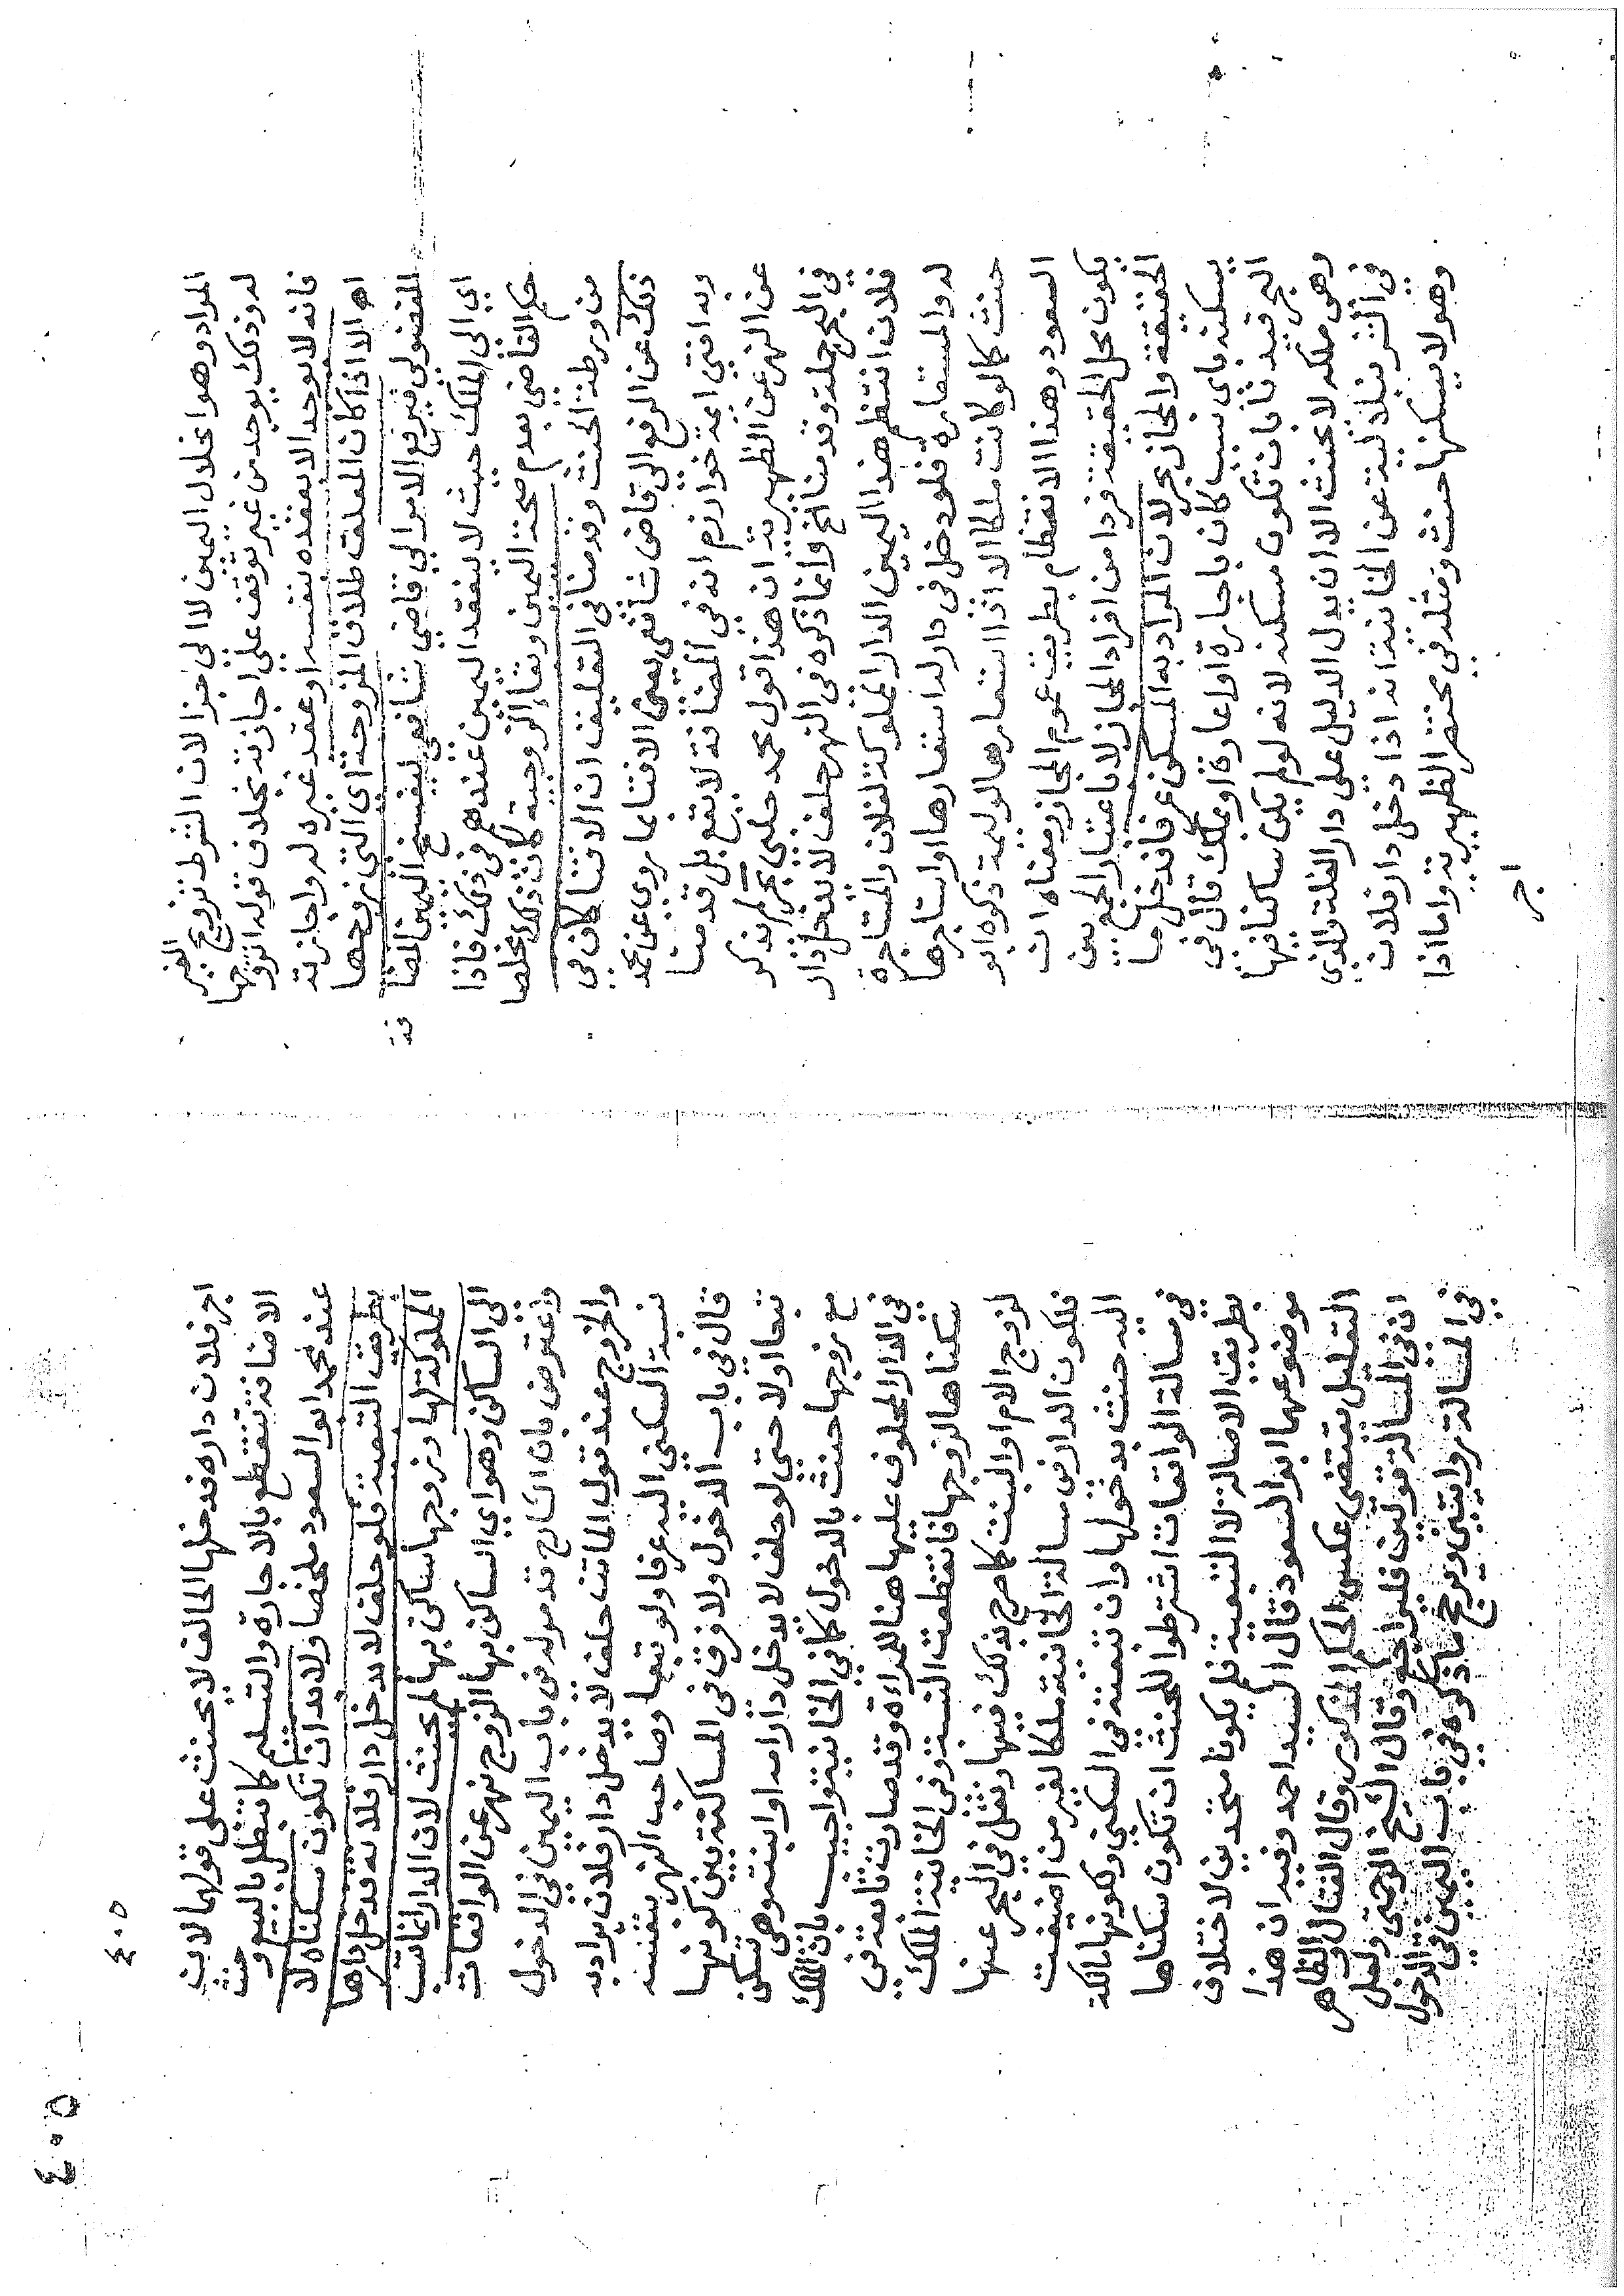 المراد وهو انحلال اليمين لا الى جزا لان الشرط تزويج الغير
له وذلك يوجد من غير توقف على اجازته بخلاف قوله اتزوجها
فانه لا يوجد الا بعقده بنفسه او عقد غيره له واجازته
اه الا اذا كان المعلق طلاق المزوجة اي التي زوجها
الفضولي فيرفع الامر الى قاضي شافعي ليفسخ اليمين المضافة
اي الى الملك حيث لا ينعقد اليمين عندهم في ذلك فاذا
حكم القاضي بعدم صحة اليمين وبقاء الزوجية كان ذلك مخلصا
من ورطة الحنث وقدمنا في التعليق ان الافتاء كاف في
ذلك عن الرفع الى قاضى شافعى يعنى الافتاء بما روى عن محمد
وبه افتى ايمة خوارزم انه في المضافة لا يقع بل قدمنا
عن النهر عن الظهيرية ان هذا قول محمد حلبي بحر لم يذكر
في البحر جملة وقدمنا الخ وانما ذكره في النهر حلف لا يدخل دار
فلان انتظم هذا اليمين الدار المملوكة لفلان والمستاجرة
له والمستعارة فلو دخل في دار له استعارها او استاجرها
حنث كما لو كانت ملكا الا اذا استعارها لوليمة ذكره ابو
السعود وهذا الانتظام بطريق عموم المجاز ومعناه ان
يكون محل الحقيقة فردا من افراد المجاز لا باعتبار الجمع بين
الحقيقة والمجاز بحر لان المراد به المسكن عرفا فدخل ما
يسكنه باى سبب كان باجارة او اعارة او ملك قال في
البحر قيد ثابان تكون مسكنه لانه لو لم يكن ساكنا فيها
وهى ملكه لا يحنث الا ان يدل الدليل على دار الغلة والذى
في الشرنبلالية عن الخانية انه اذا دخل دار فلان
وهو لا يسكنها حنث ومثله في مختصر الظهيرية واما اذا
اجر
٤٠٥
٤٠٥
اجر فلان داره فدخلها الحالف لا يحنث على قولهما لان
الاضافة تنقطع بالاجارة والتسليم كما تبطل بالبيع وحنث
عند محمد ابو السعود ملخصا ولا بد ان تكون سكناه لا
بطريق التبعية فلو حلف لا يدخل دار فلانة فدخل دارها
المملوكة لها وزوجها ساكن بها لم يحنث لان الدار انما تنسب
الى الساكن وهو اي الساكن بها الزوج نهر عن الواقعات
واعترض بان الشارح قدم وله في باب اليمين في الدخول
والخروج عند قول الماتن حلف لا يدخل دار فلان يراد به
نسبة السكنى اليه عرفا ولو تبعا وصاحب النهر بنفسه
قال في باب الدخول ولا فرق في المساكنة بين كونها
تبعا او لا حتى لو حلف لا يدخل دار امه او ابنته وهى تسكن
مع زوجها حنث بالدخول كما في الخانية واجيب بان الملك
في الدار المحلوف عليها هنا للمراة وقد صارت تابعة في
سكناها لزوجها فانقطعت النسبة وفى الخانية الملك
لزوج الام او البنت كما صرح بذلك فيها ونقل في البحر عنها
فلكون الدار في مسالة الخانية ملكا لغير من اضيفت
اليه حنث بدخولها وان تبعية في السكنى ولكونها مالكة
في مسالة الواقعات اشترطوا للحنث ان تكون سكناها
بطريق الاصالة لا التبعية فلم يكونا متحدين لاختلاف
موضوعهما ابو السعود قال السيد احمد وفيه ان هذا
التعليل يقتضى عكس الحكم المذكور وقال الفتال والظاهر
ان في المسالة قولين فليراجع وقال الشيخ الرحمتى ولعل
في المسالة روايتين ويرجح ما ذكره في باب اليمين في الدخول